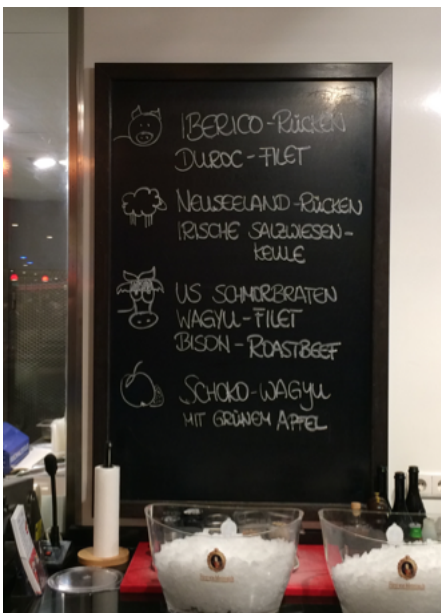 IBERICO-RÜCKEN
DUROC-FILET
NEUSEELAND-RÜCKEN
IRISCHE SALZWIESEN-
KEULE
US SCHMORBRATEN
WAGYU-FILET
BISON-ROASTBEEF
SCHOKO-WAGYU
MIT GRÜNEM APFEL